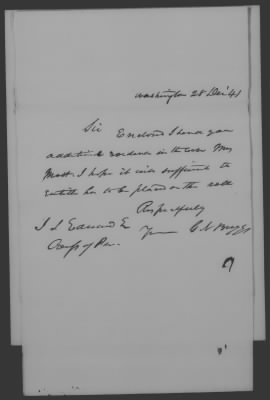 Washington 28 Decr 41
Sir Enclosed I send you
additional evidence in the case Mrs
Mott. I hope it is sufficient to
entitle her to be placed on the roll
Respectfully
J L Edwards Esq Yours G N Briggs
Comr of Pen.